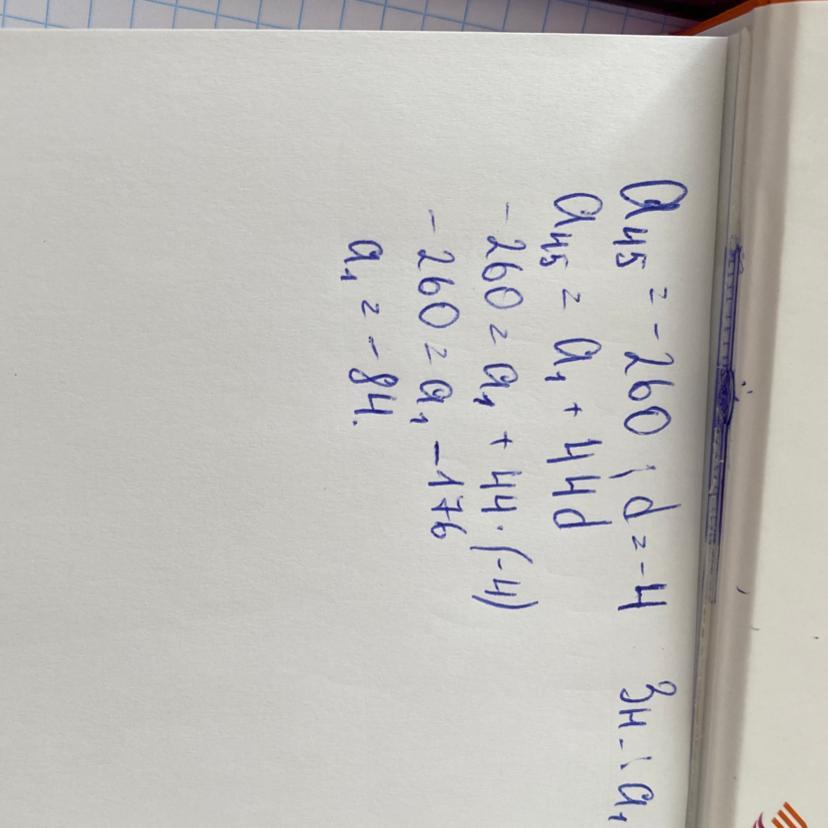 a₄₅ = -260 ; d = -4 Зн-: a₁
a₄₅ = a₁ + 44d
-260 = a₁ + 44·(-4)
-260 = a₁ - 176
a₁ = -84.